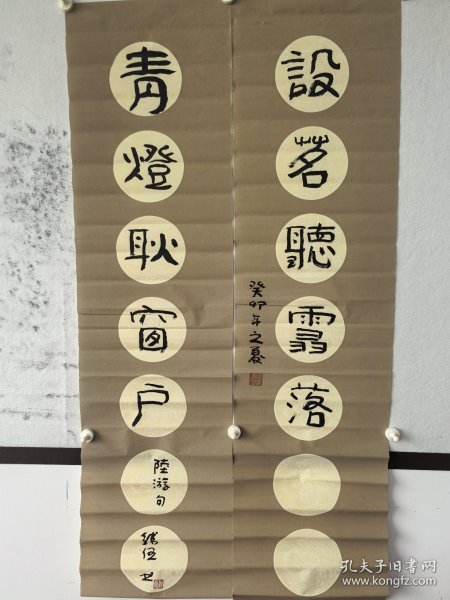 設茗聽雪落
癸卯年之夏
青燈耿窗戶
陸游句
孔夫子旧书网
www.kongfz.com